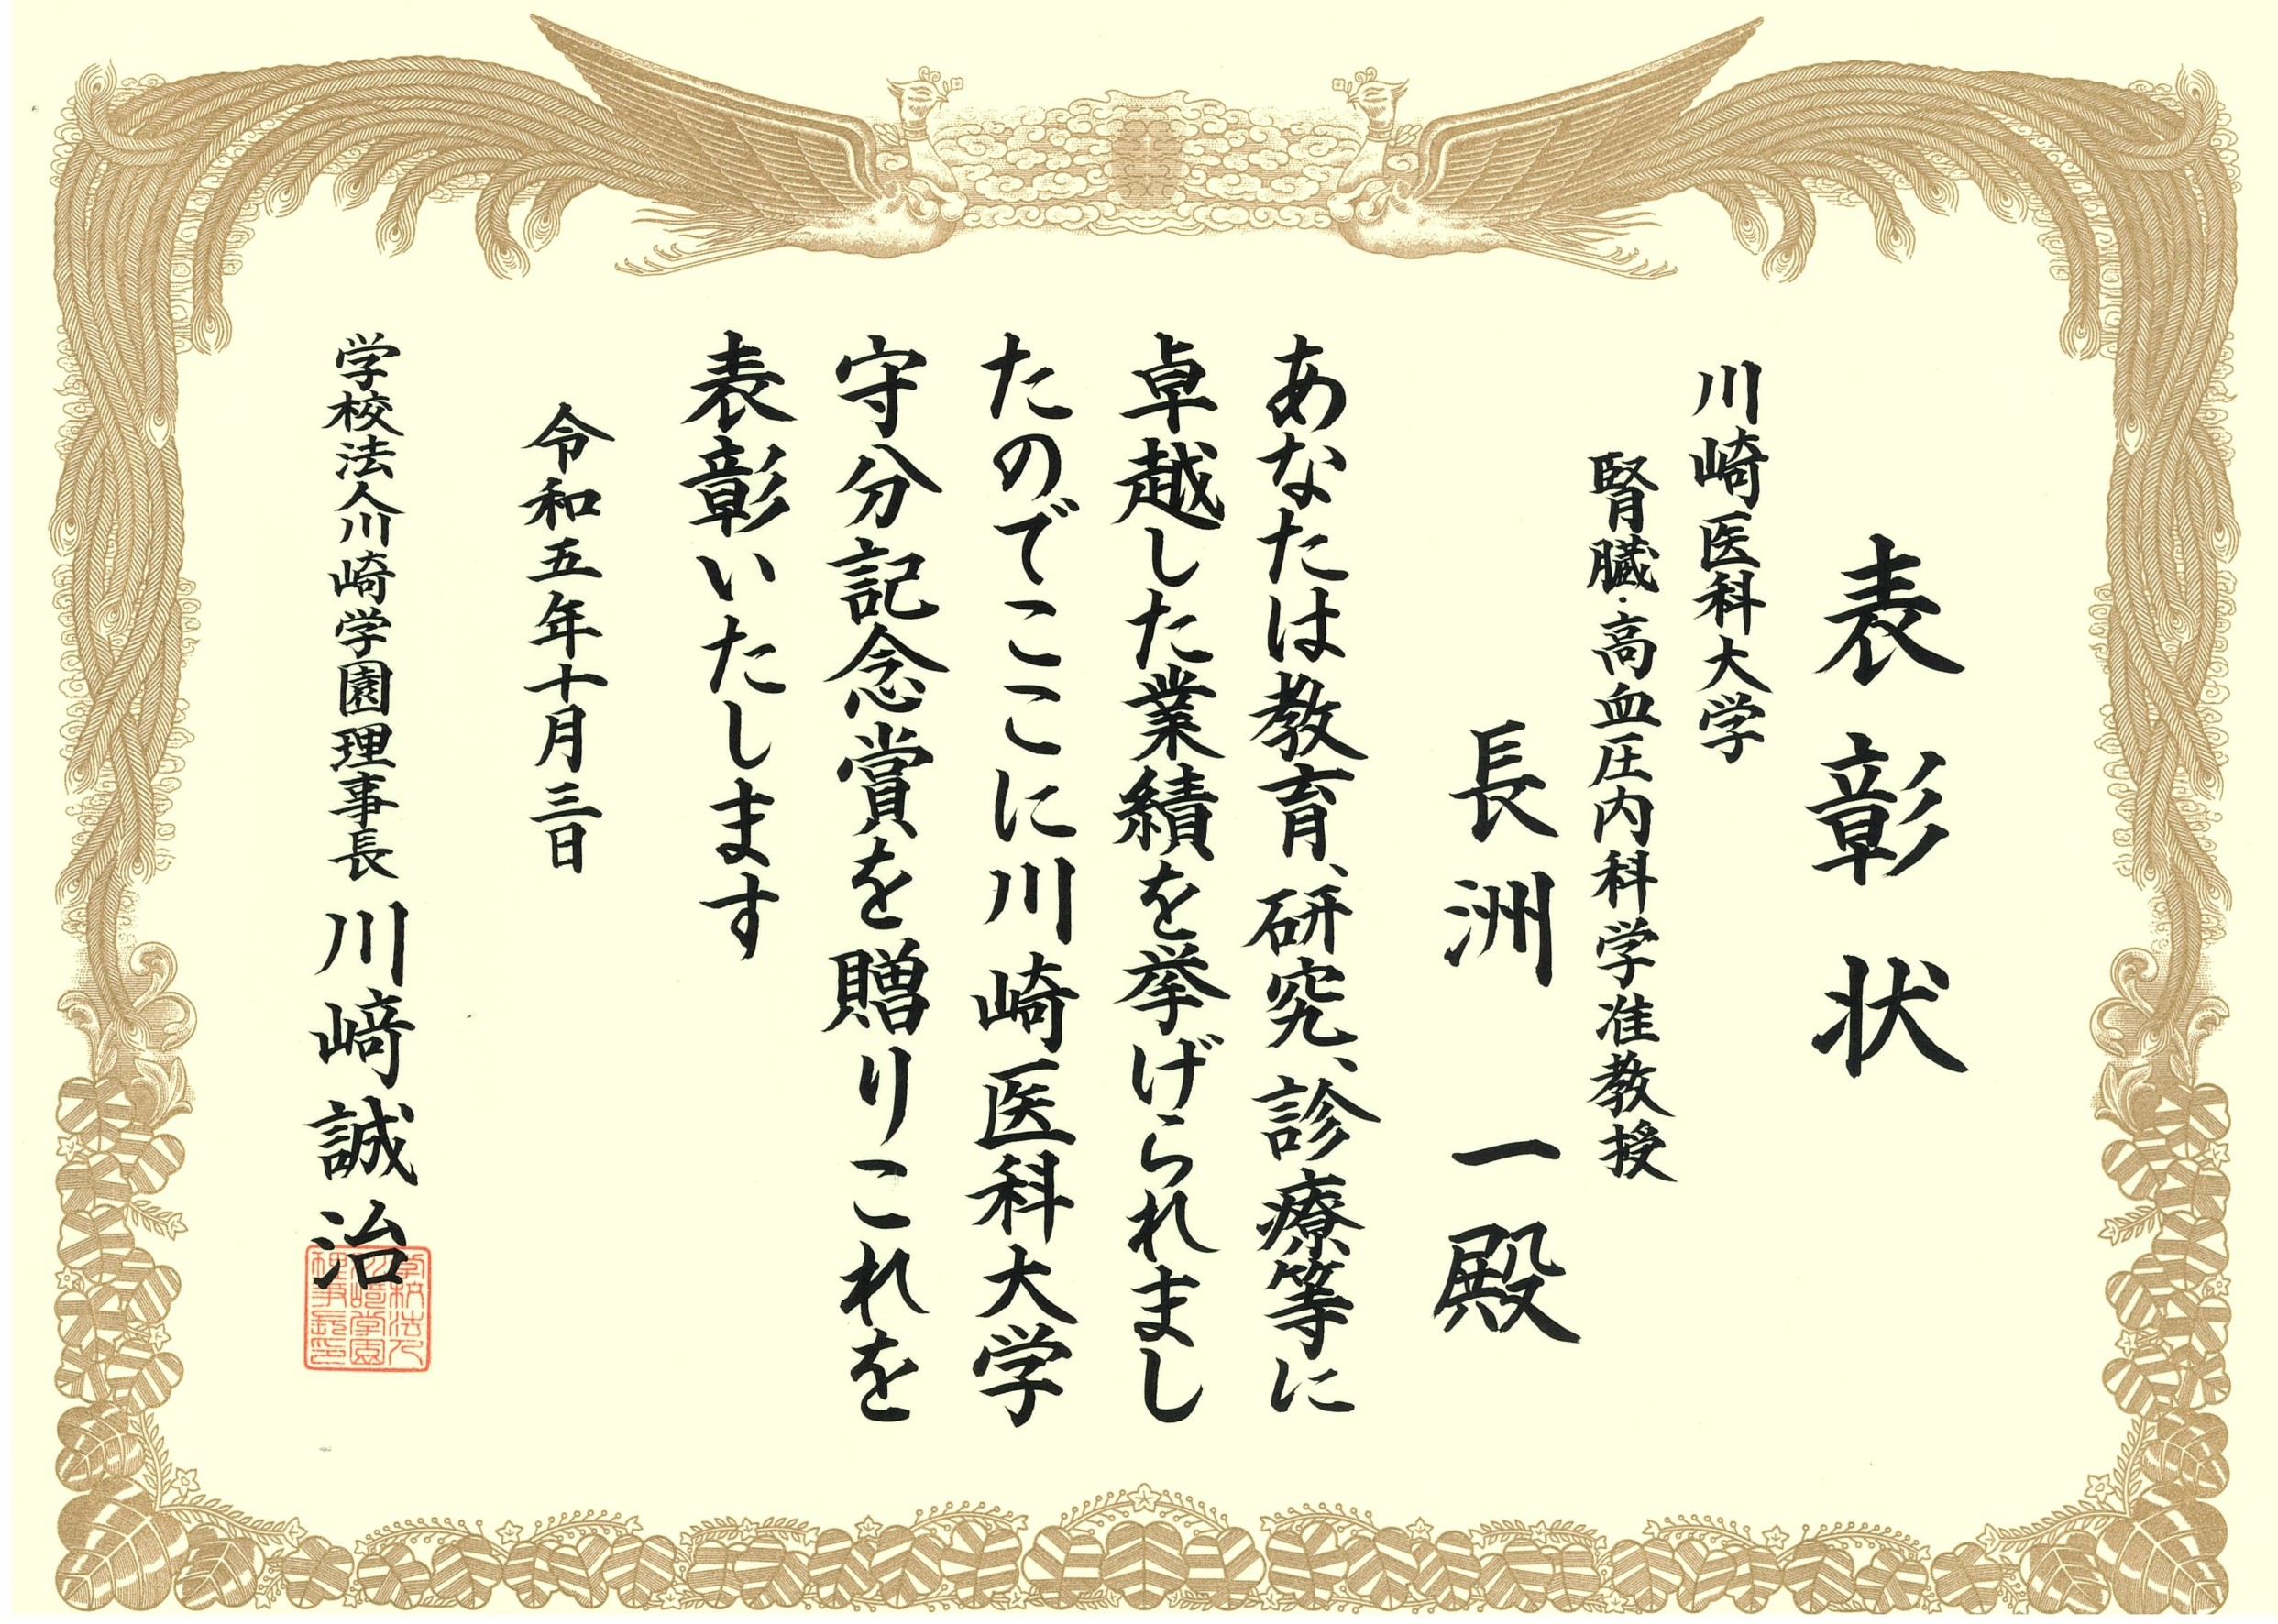 表彰状
川崎医科大学
腎臓・高血圧内科学准教授
長洲 一殿
あなたは教育、研究、診療等に
卓越した業績を挙げられまし
たのでここに川崎医科大学
守分記念賞を贈りこれを
表彰いたします
令和五年十月三日
学校法人川崎学園理事長 川﨑誠治
学校法人
川崎学園
理事長印